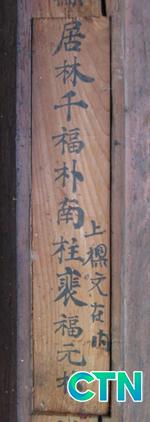 居林千福朴南柱裵福元
上樑文在内
CTN